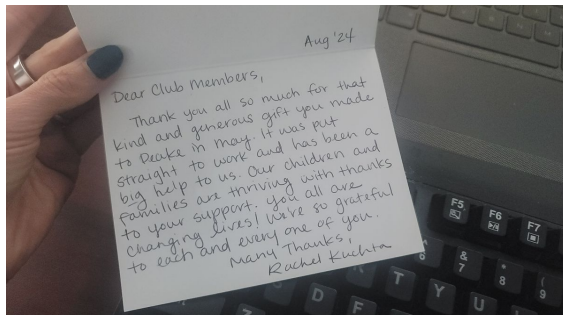 Aug '24
Dear Club Members,
Thank you all so much for that
kind and generous gift you made
to Deake in may. It was put
straight to work and has been a
big help to us. Our children and
families are thriving with thanks
to your support. you all are
changing lives! We're so grateful
to each and every one of you.
Many Thanks,
Rachel Kuchta
F5
F6
F7
6
&
7
*
8
(
9
T
Y
U
D
F